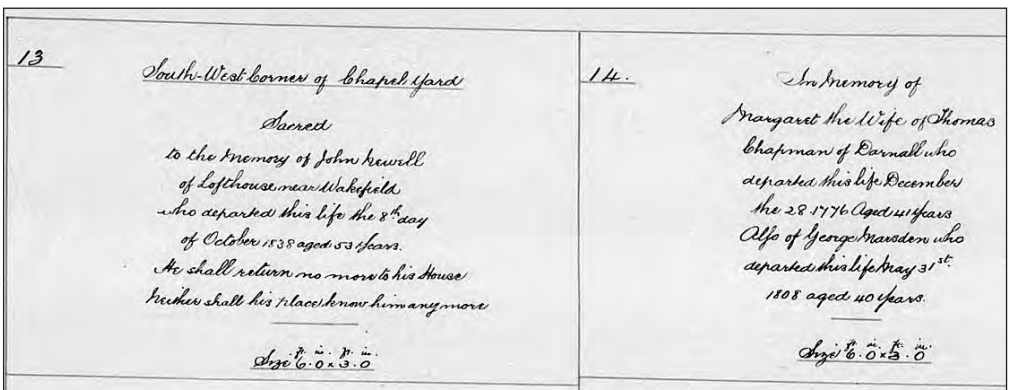 13
South-West Corner of Chapel Yard
Sacred
to the Memory of John Newell
of Lofthouse near Wakefield
who departed this life the 8th day
of October 1838 aged 53 Years.
He shall return no more to his House
Neither shall his place know him any more
ft. in. ft. in.
Size 6.0 x 3.0
14.
In Memory of
Margaret the Wife of Thomas
Chapman of Darnall who
departed this life December
the 28 1776 Aged 41 Years
Alſo of George Marsden who
departed this life May 31st.
1808 aged 40 Years.
ft. in. ft. in.
Size 6.0 x 3.0